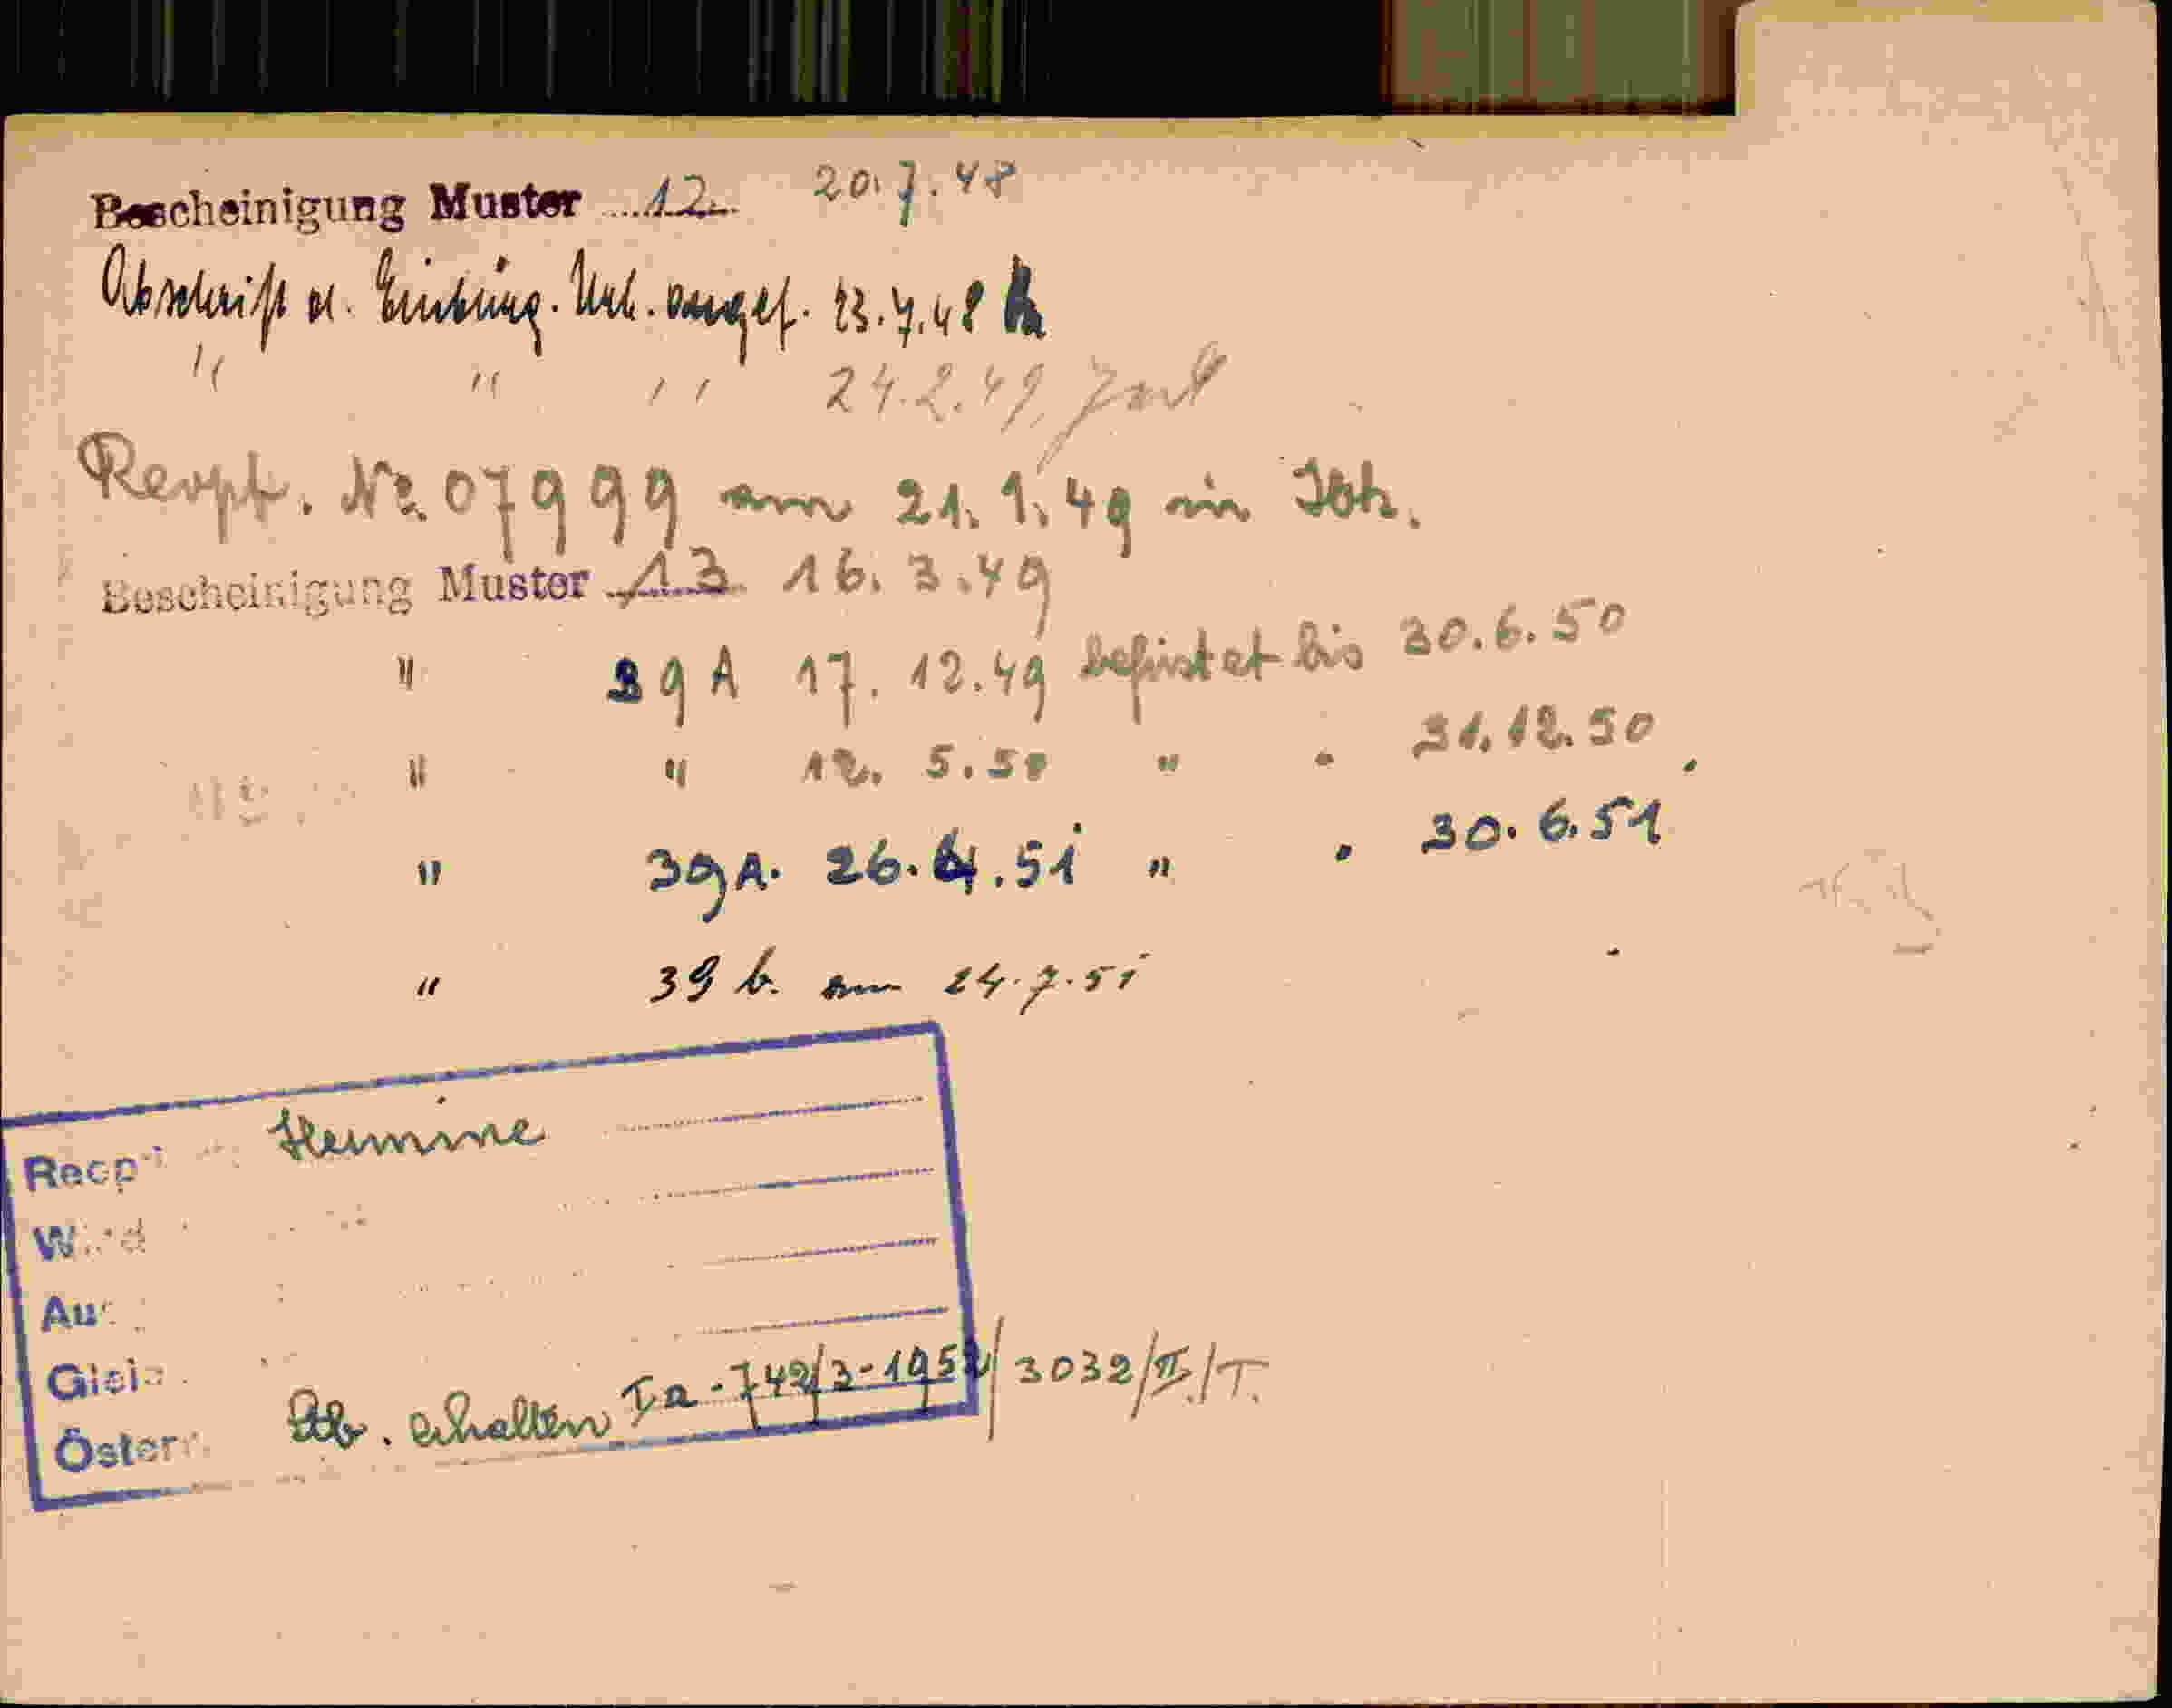 Bescheinigung Muster 12. 20.7.48
Abschrift d. Einbürg. Urk. ausgef. 23.7.48
" " " 24.2.49
Reopt. No. 07999 am 21.1.49 in Ibk.
Bescheinigung Muster 13 16.3.49
" 39 A 17.12.49 befristet bis 30.6.50
" " 12.5.50 " " 31.12.50
" 39 A. 26.4.51 " " 30.6.51
" 39 b. am 24.7.51
Reopt Hermine
Wird
Aus
Gleic
Österr. Stb. erhalten Ia-742/3-1952/3032/II./T.